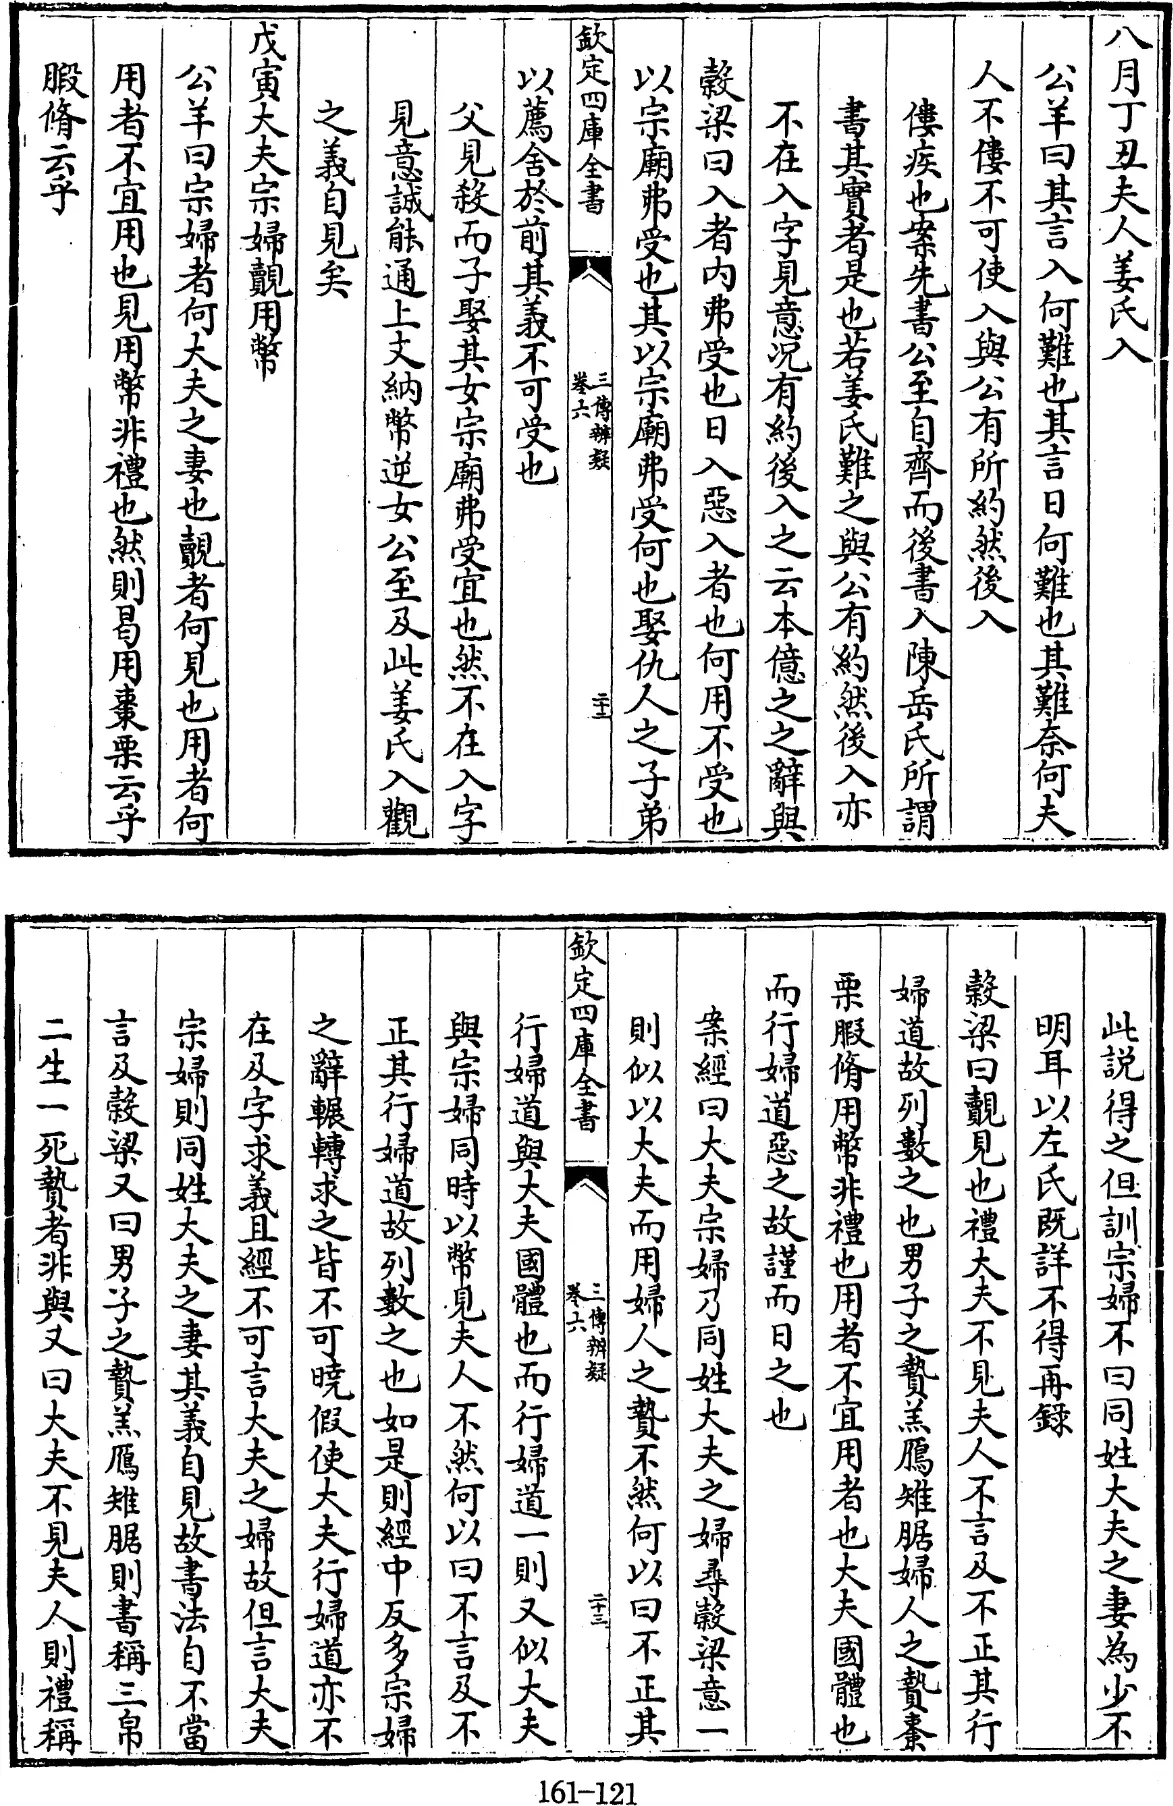 八月丁丑夫人姜氏入
公羊曰其言入何難也其言日何難也其難奈何夫
人不僂不可使入與公有所約然後入
僂疾也案先書公至自齊而後書入陳岳氏所謂
書其實者是也若姜氏難之與公有約然後入亦
不在入字見意况有約後入之云本億之之辭與
穀梁曰入者內弗受也日入惡入者也何用不受也
以宗廟弗受也其以宗廟弗受何也娶仇人之子弟
欽定四庫全書
三傳辨疑
卷六
二十二
以薦舍於前其義不可受也
父見殺而子娶其女宗廟弗受宜也然不在入字
見意誠能通上文納幣逆女公至及此姜氏入觀
之義自見矣
戊寅大夫宗婦覿用幣
公羊曰宗婦者何大夫之妻也覿者何見也用者何
用者不宜用也見用幣非禮也然則曷用棗栗云乎
腶脩云乎
此説得之但訓宗婦不曰同姓大夫之妻為少不
明耳以左氏既詳不得再録
穀梁曰覿見也禮大夫不見夫人不言及不正其行
婦道故列數之也男子之贄羔鴈雉腒婦人之贄棗
栗腶脩用幣非禮也用者不宜用者也大夫國體也
而行婦道惡之故謹而日之也
案經曰大夫宗婦乃同姓大夫之婦尋穀梁意一
則似以大夫而用婦人之贄不然何以曰不正其
欽定四庫全書
三傳辨疑
卷六
二十三
行婦道與大夫國體也而行婦道一則又似大夫
與宗婦同時以幣見夫人不然何以曰不言及不
正其行婦道故列數之也如是則經中反多宗婦
之辭輾轉求之皆不可曉假使大夫行婦道亦不
在及字求義且經不可言大夫之婦故但言大夫
宗婦則同姓大夫之妻其義自見故書法自不當
言及穀梁又曰男子之贄羔鴈雉腒則書稱三帛
二生一死贄者非與又曰大夫不見夫人則禮稱
161-121